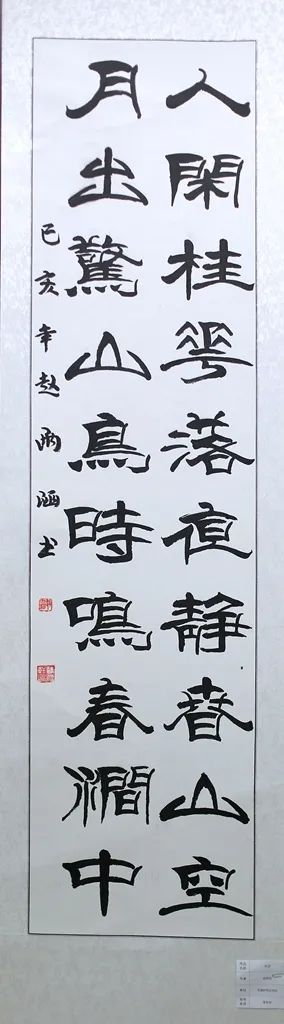 人閑桂華落夜静春山空
月出驚山鳥時鳴春澗中
己亥年赵雨涵书